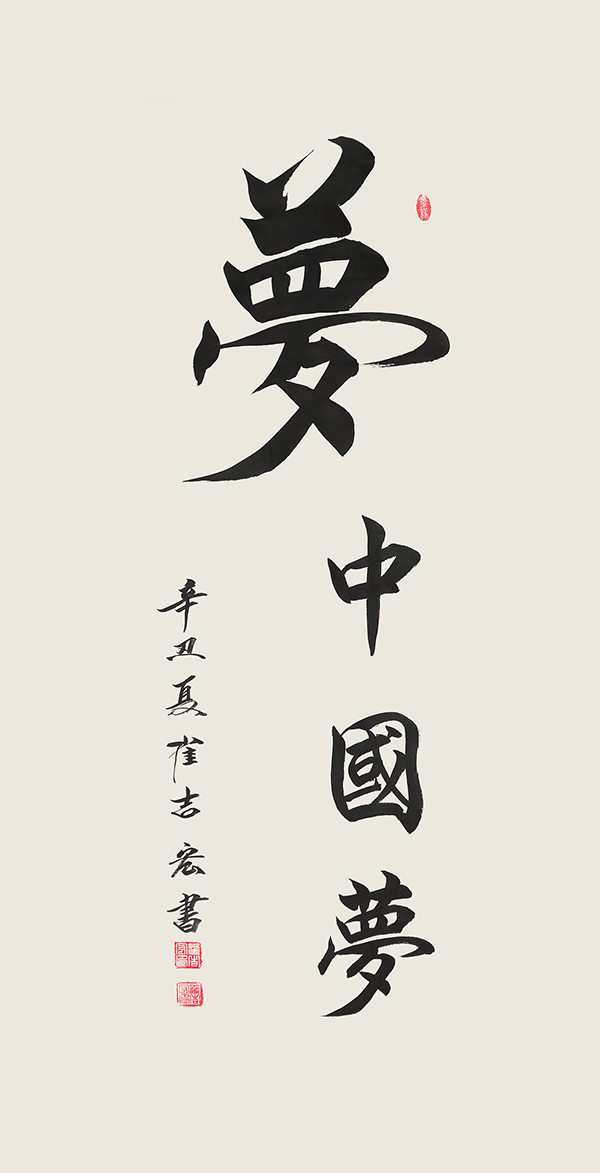 夢
中國夢
辛丑夏崔吉宏書